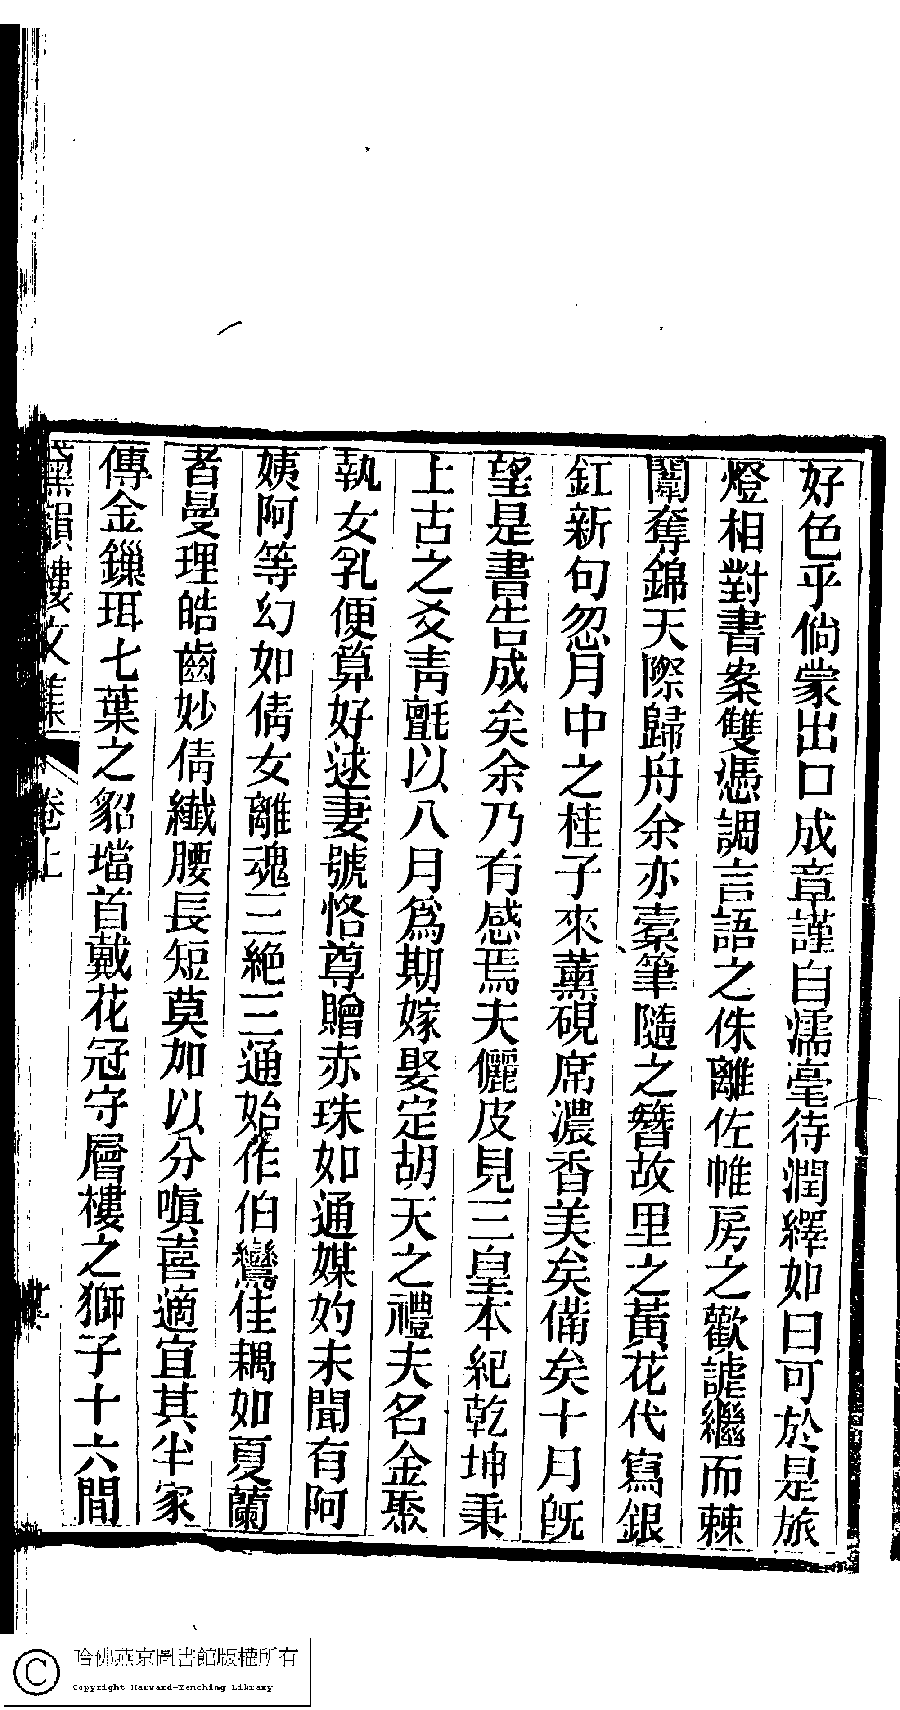 好色乎倘蒙出口成章謹自濡毫待潤繹如曰可於是旅
燈相對書案雙憑調言語之侏離佐帷房之歡謔繼而棘
闈奪錦天際歸舟余亦橐筆隨之簪故里之黃花代寫銀
釭新句忽月中之桂子來薰硯席濃香美矣備矣十月既
望是書告成矣余乃有感焉夫儷皮見三皇本紀乾坤秉
上古之爻靑氈以八月爲期嫁娶定胡天之禮夫名金聚
執女乳便算好逑妻號恪尊贈赤珠如通媒妁未聞有阿
姨阿等幻如倩女離魂三絶三通始作伯鸞佳耦如夏蘭
者曼理皓齒妙倩纖腰長短莫加以分嗔喜適宜其半家
傳金鏁珥七葉之貂璫首戴花冠守層樓之獅子十六間
黛韻樓文集 卷上
哈佛燕京圖書館版權所有
Copyright Harvard-Yenching Library